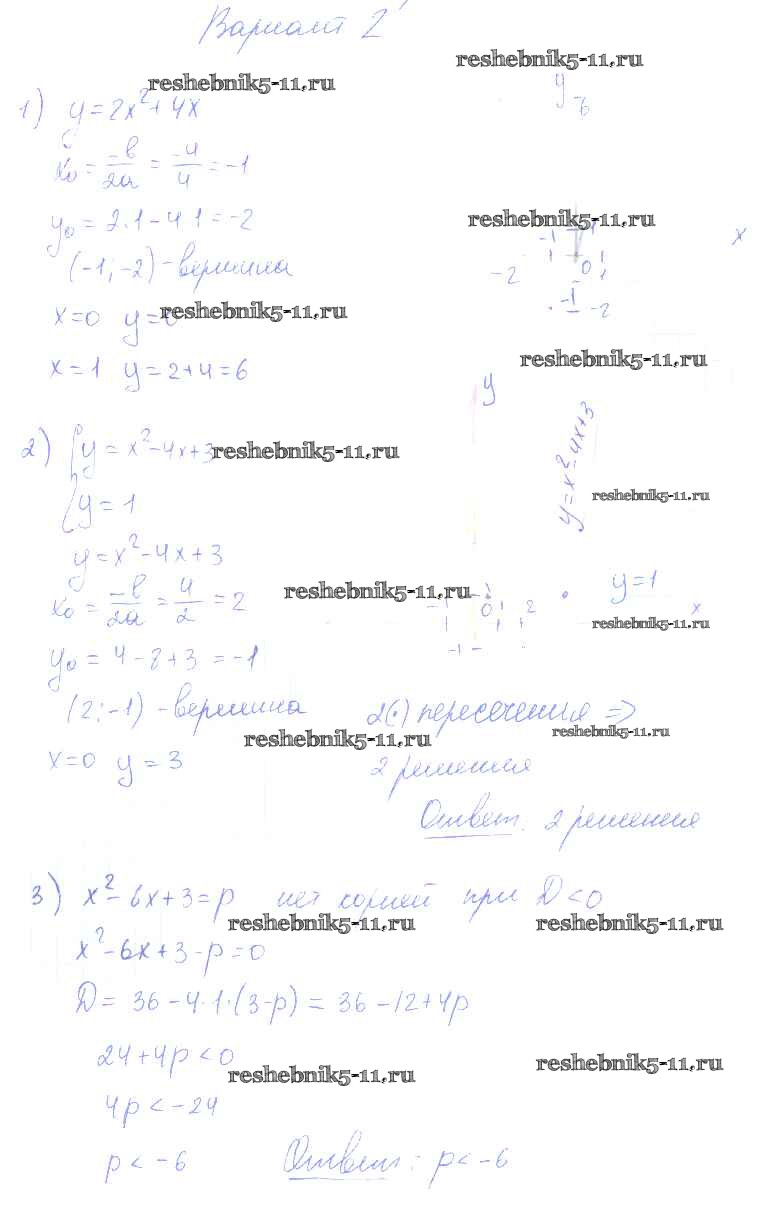 Вариант 2
reshebnik5-11.ru
reshebnik5-11.ru
1) y = 2x² + 4x
y
6
x₀ = -b/2a = -4/4 = -1
y₀ = 2·1 - 4·1 = -2
reshebnik5-11.ru
x
-1 1
-2 0 1
-1
-2
(-1; -2) - вершина
x=0 y=0
reshebnik5-11.ru
x = 1 y = 2+4 = 6
reshebnik5-11.ru
y
2) { y = x² - 4x + 3
reshebnik5-11.ru
y = 1
y = x² - 4x + 3
reshebnik5-11.ru
y = x² - 4x + 3
x₀ = -b/2a = 4/2 = 2
reshebnik5-11.ru
y = 1
-1 0 1 2 x
reshebnik5-11.ru
-1
y₀ = 4 - 8 + 3 = -1
(2; -1) - вершина
2(·) пересечения ⇒
reshebnik5-11.ru
reshebnik5-11.ru
x=0 y = 3
2 решения
Ответ: 2 решения
3) x² - 6x + 3 = p нет корней при D < 0
reshebnik5-11.ru
reshebnik5-11.ru
x² - 6x + 3 - p = 0
D = 36 - 4·1·(3-p) = 36 - 12 + 4p
24 + 4p < 0
reshebnik5-11.ru
reshebnik5-11.ru
4p < -24
p < -6 Ответ: p < -6